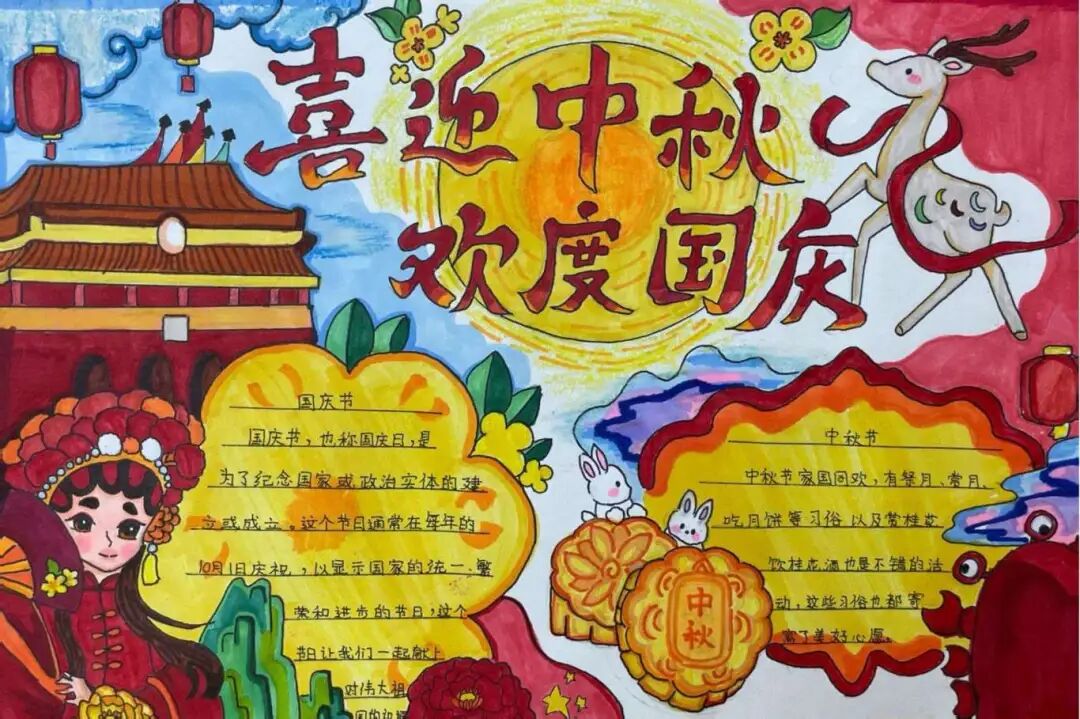 喜迎中秋
欢度国庆
国庆节
国庆节，也称国庆日，是
为了纪念国家或政治实体的建
立或成立。这个节日通常在每年的
10月1日庆祝，以显示国家的统一、繁
荣和进步的节日，这个
节日让我们一起献上
对伟大祖
国的
中秋节
中秋节家国同欢，有祭月、赏月、
吃月饼等习俗以及赏桂花
饮桂花酒也是不错的活
动，这些习俗也都寄
寓了美好心愿。
中
秋